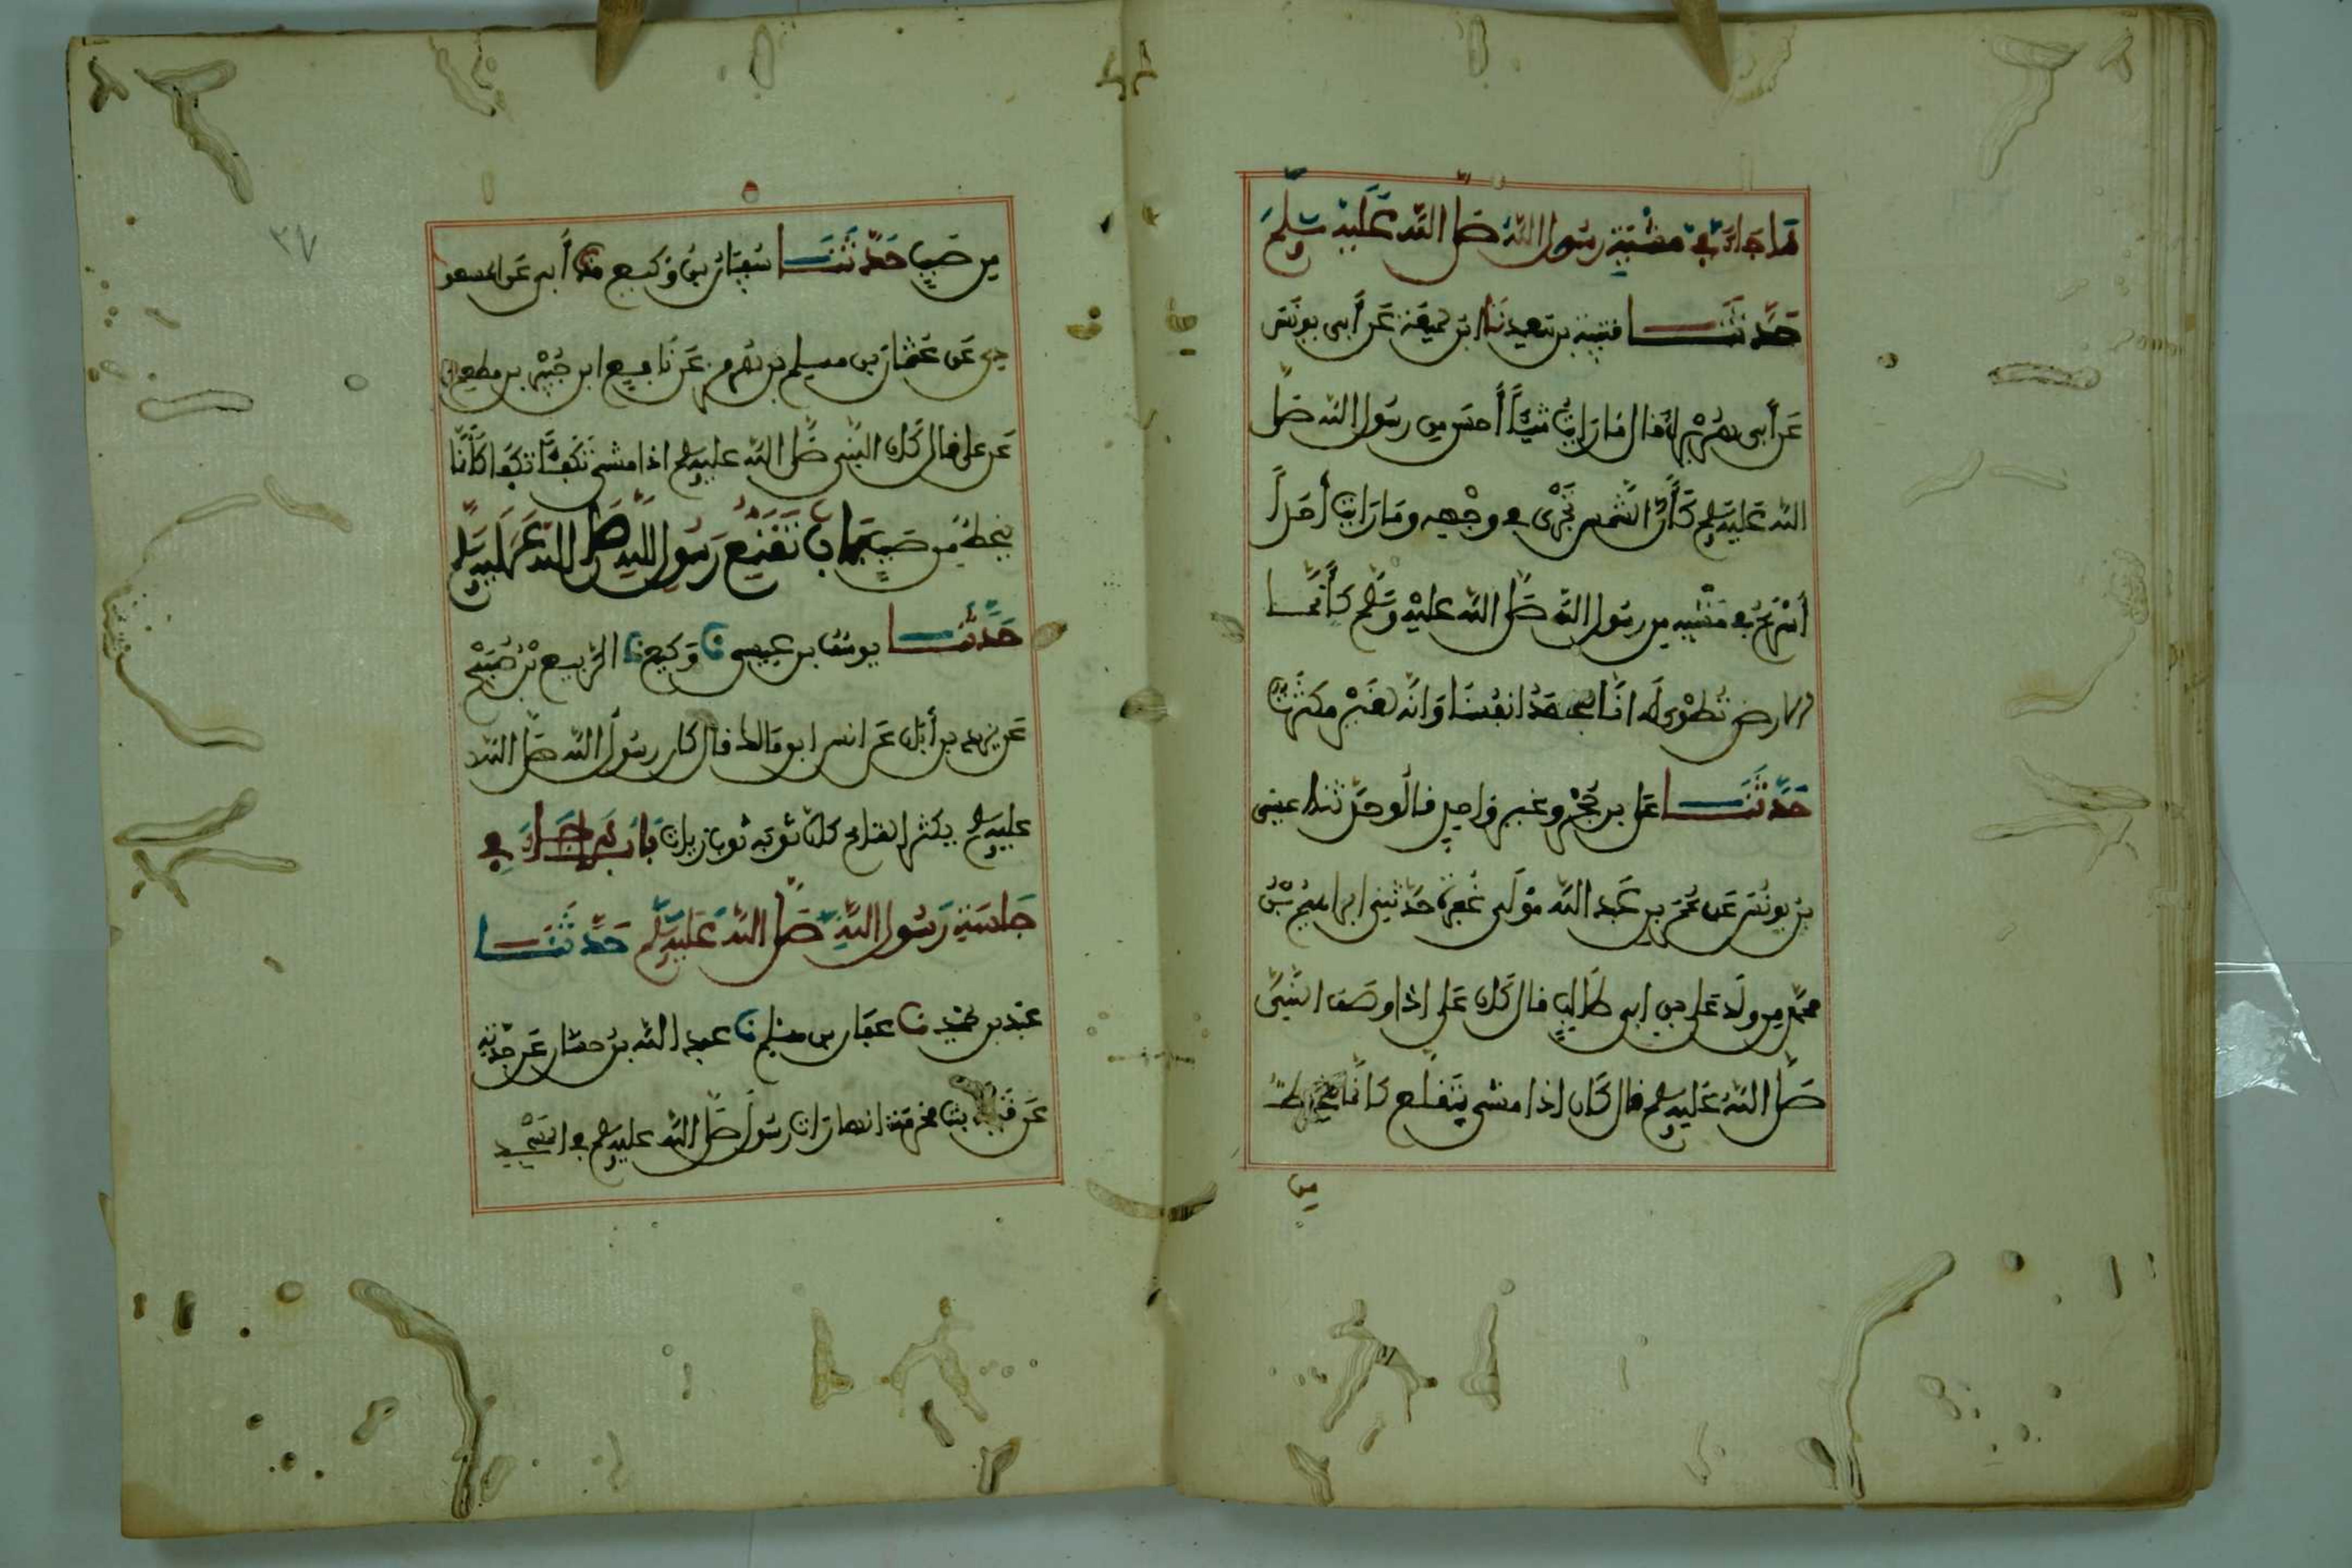 ما جاء في مشية رسول الله صلى الله عليه وسلم
حدثنا قتيبة بن سعيد نا ابن لهيعة عن أبي يونس
عن أبي هريرة قال ما رايت شيئا أحسن من رسول الله صلى
الله عليه وسلم كأن الشمس تجري في وجهه وما رايت أحدا
أسرع في مشيه من رسول الله صلى الله عليه وسلم كأنما
الارض تطوى له انا لنجهد انفسنا وانه لغير مكترث
حدثنا علي بن حجر وغير واحد قالو حدثنا عيسى
بن يونس عن عمر بن عبد الله مولى غفرة حدثني ابراهيم بن
محمد من ولد علي بن ابي طالب قال كان علي اذا وصف النبي
صلى الله عليه وسلم قال كان اذا مشى يتقلع كانما ينحط
من
٢٧
من صبب حدثنا سفيان بن وكيع نا أبي عن المسعو
دي عن عثمان بن مسلم بن هرمز عن نافع ابن جبير بن مطعم
عن علي قال كان النبي صلى الله عليه وسلم اذا مشى تكفأ تكفؤا كأنما
ينحط من صبب باب تقنع رسول الله صلى الله عليه وسلم
حدثنا يوسف بن عيسى نا وكيع نا الربيع بن صبيح
عن يزيد بن أبان عن انس ابن مالك قال كان رسول الله صلى الله
عليه وسلم يكثر القناع كان ثوبه ثوب زيات باب ما جاء في
جلسة رسول الله صلى الله عليه وسلم حدثنا
عبد بن حميد نا عفان بن مسلم نا عبد الله بن حسان عن جدتيه
عن قيلة بنت مخرمة انها رات رسول صلى الله عليه وسلم في المسجد